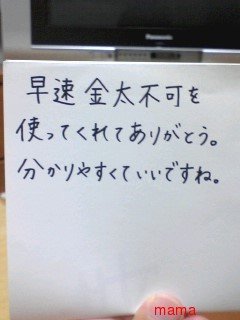 Panasonic
早速 金太不可を
使ってくれてありがとう。
分かりやすくていいですね。
mama